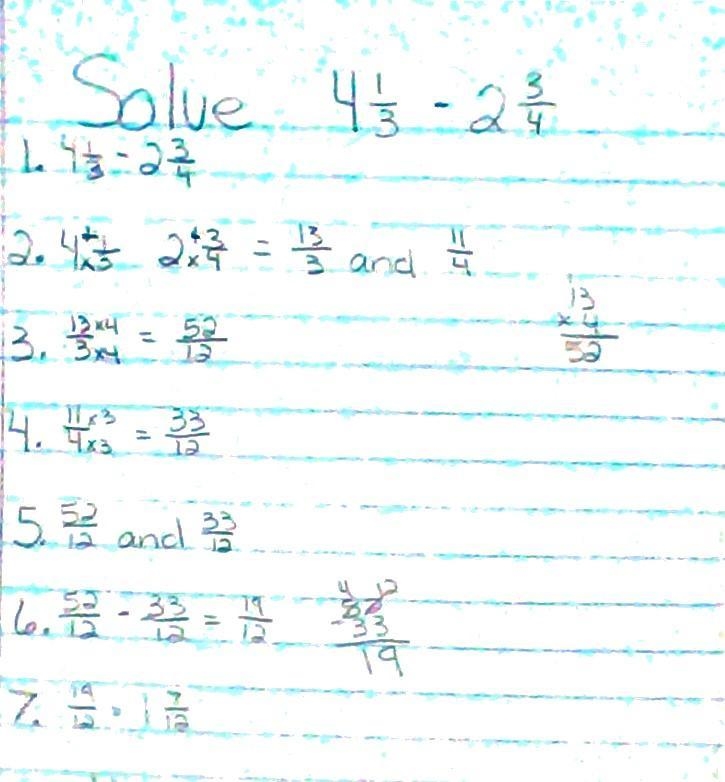 Solve 4 1/3 - 2 3/4
1. 4 1/3 - 2 3/4
2. 4 + × 1/3 2 + × 3/4 = 13/3 and 11/4
13
× 4
52
3. 13×4/3×4 = 52/12
4. 11×3/4×3 = 33/12
5. 52/12 and 33/12
6. 52/12 - 33/12 = 19/12
4 12
52
-33
19
7. 19/12 = 1 7/12